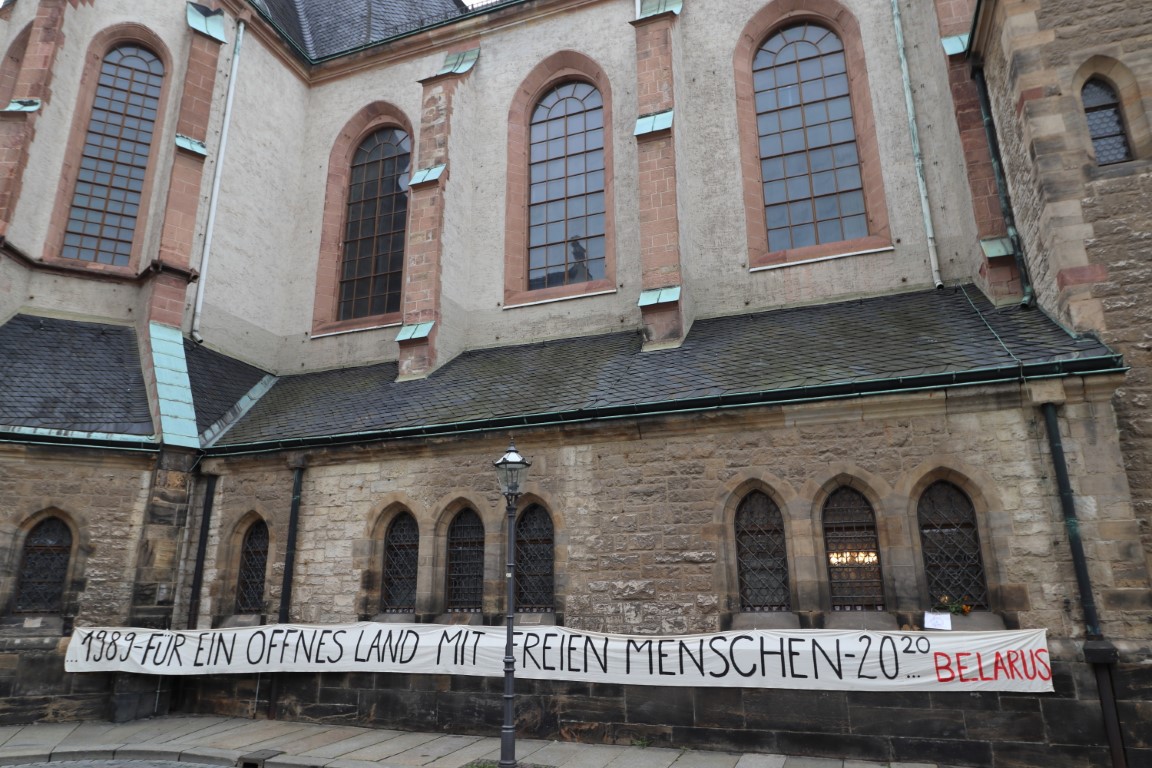 ...1989-FÜR EIN OFFNES LAND MIT FREIEN MENSCHEN-20²⁰... BELARUS